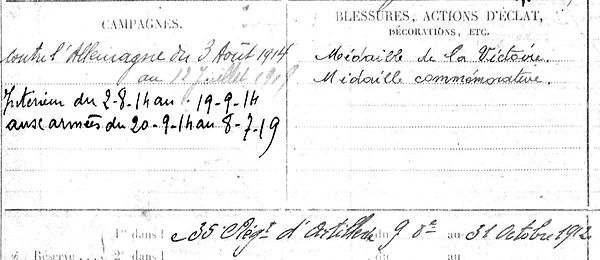 CAMPAGNES.
contre l'Allemagne du 3 Août 1914
au 12 Juillet 1919
Intérieur du 2-8-14 au 19-9-14
aux armées du 20-9-14 au 8-7-19
BLESSURES, ACTIONS D'ÉCLAT,
DÉCORATIONS, ETC.
Médaille de la Victoire.
Médaille commémorative.
1er dans l 35 Régt d'Artillerie 9 au 31 Octobre 1912
Réserve 2e dans l au